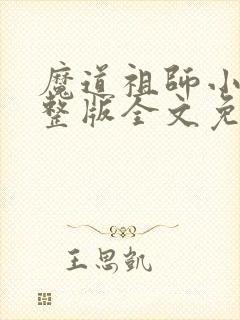 魔道祖师小
整版全文免
王思凯